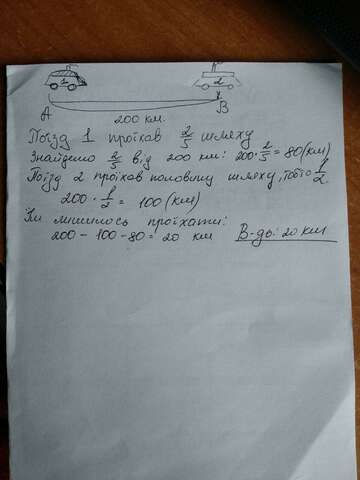 1 2
A B
200 км.
Поїзд 1 проїхав 2/5 шляху
Знайдемо 2/5 від 200 км: 200·2/5=80(км)
Поїзд 2 проїхав половину шляху, тобто 1/2.
200·1/2 = 100(км)
Їм лишилось проїхати:
200-100-80=20 км В-дь: 20 км